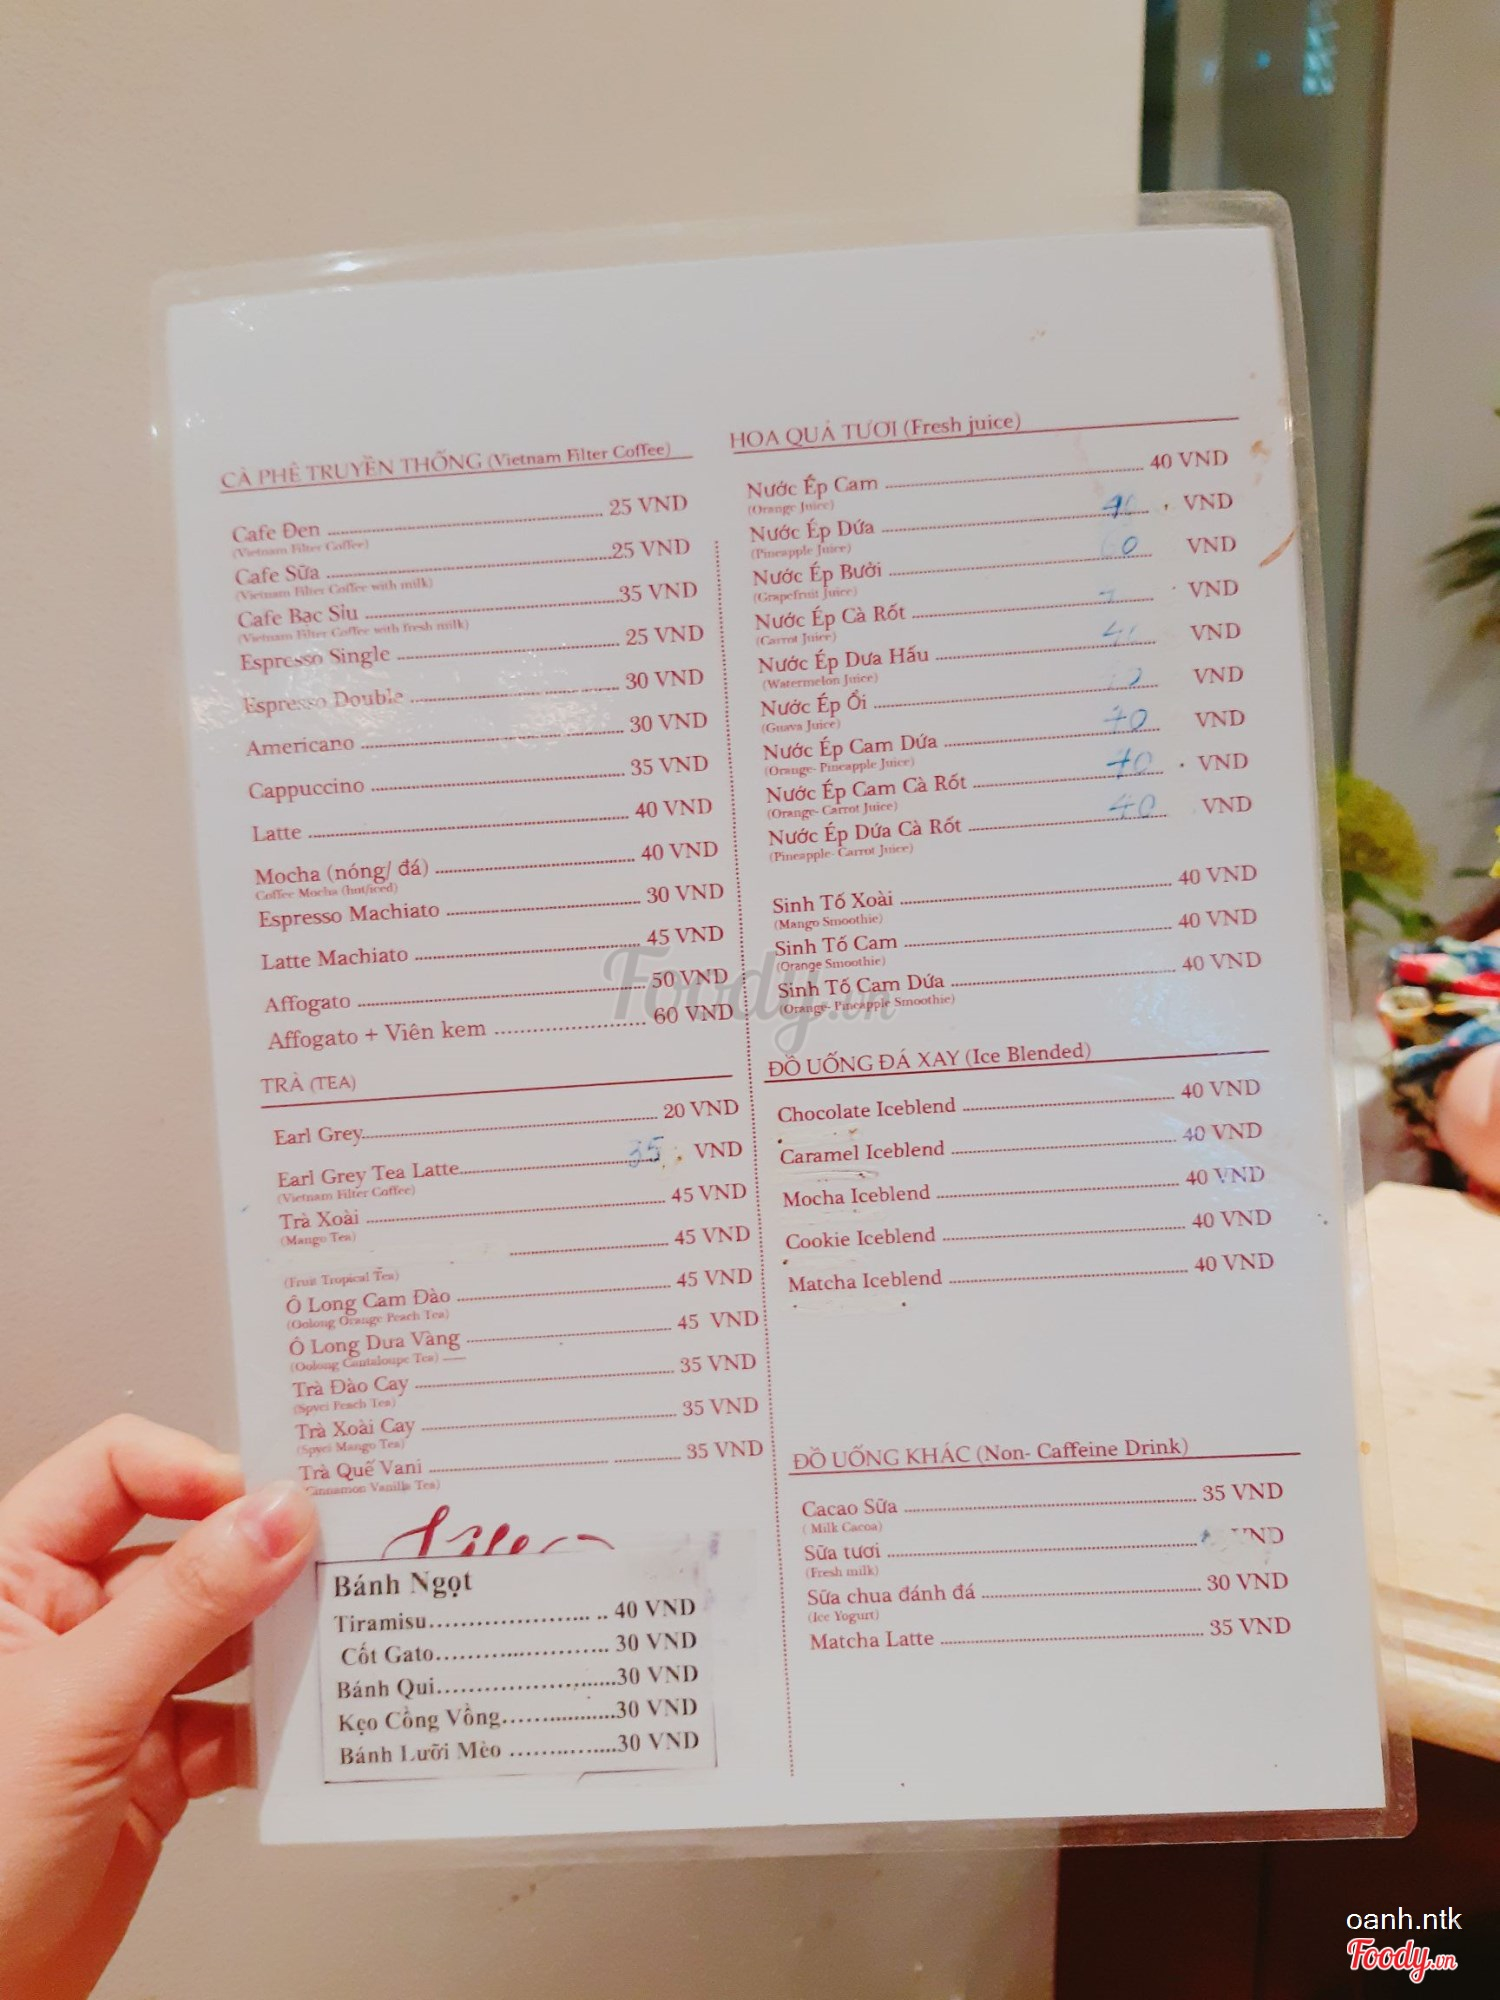 CÀ PHÊ TRUYỀN THỐNG (Vietnam Filter Coffee)
Cafe Đen 25 VND
(Vietnam Filter Coffee)
Cafe Sữa 25 VND
(Vietnam Filter Coffee with milk)
Cafe Bạc Sỉu 35 VND
(Vietnam Filter Coffee with fresh milk)
Espresso Single 25 VND
Espresso Double 30 VND
Americano 30 VND
Cappuccino 35 VND
Latte 40 VND
Mocha (nóng/ đá) 40 VND
Coffee Mocha (hot/iced)
Espresso Machiato 30 VND
Latte Machiato 45 VND
Affogato 50 VND
Affogato + Viên kem 60 VND
TRÀ (TEA)
Earl Grey 20 VND
Earl Grey Tea Latte 35 VND
(Vietnam Filter Coffee)
Trà Xoài 45 VND
(Mango Tea)
45 VND
(Fruit Tropical Tea)
Ô Long Cam Đào 45 VND
(Oolong Orange Peach Tea)
Ô Long Dưa Vàng 45 VND
(Oolong Cantaloupe Tea)
Trà Đào Cay 35 VND
(Spyci Peach Tea)
Trà Xoài Cay 35 VND
(Spyci Mango Tea)
Trà Quế Vani 35 VND
(Cinnamon Vanilla Tea)
Bánh Ngọt
Tiramisu 40 VND
Cốt Gato 30 VND
Bánh Qui 30 VND
Kẹo Cồng Vồng 30 VND
Bánh Lưỡi Mèo 30 VND
HOA QUẢ TƯƠI (Fresh juice)
Nước Ép Cam 40 VND
(Orange Juice)
Nước Ép Dứa VND
(Pineapple Juice)
Nước Ép Bưởi VND
(Grapefruit Juice)
Nước Ép Cà Rốt VND
(Carrot Juice)
Nước Ép Dưa Hấu VND
(Watermelon Juice)
Nước Ép Ổi VND
(Guava Juice)
Nước Ép Cam Dứa 40 VND
(Orange- Pineapple Juice)
Nước Ép Cam Cà Rốt 40 VND
(Orange- Carrot Juice)
Nước Ép Dứa Cà Rốt 40 VND
(Pineapple- Carrot Juice)
Sinh Tố Xoài 40 VND
(Mango Smoothie)
Sinh Tố Cam 40 VND
(Orange Smoothie)
Sinh Tố Cam Dứa 40 VND
(Orange- Pineapple Smoothie)
ĐỒ UỐNG ĐÁ XAY (Ice Blended)
Chocolate Iceblend 40 VND
Caramel Iceblend 40 VND
Mocha Iceblend 40 VND
Cookie Iceblend 40 VND
Matcha Iceblend 40 VND
ĐỒ UỐNG KHÁC (Non- Caffeine Drink)
Cacao Sữa 35 VND
( Milk Cacoa)
Sữa tươi VND
(Fresh milk)
Sữa chua đánh đá 30 VND
(Ice Yogurt)
Matcha Latte 35 VND
Foody.vn
oanh.ntk
Foody.vn